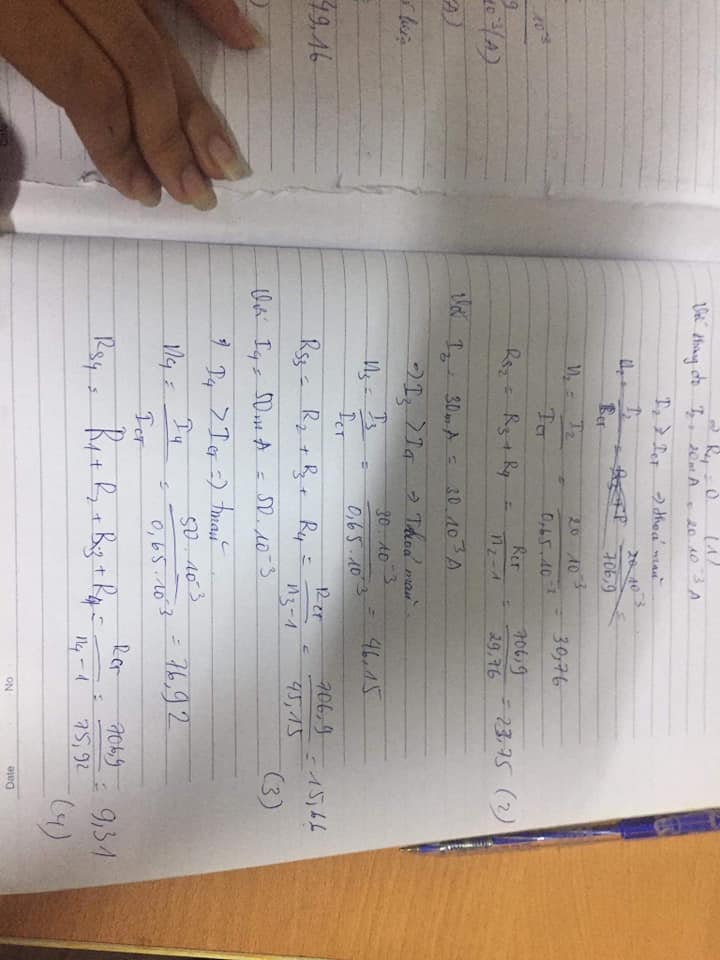 10⁻³
10⁻³(A)
(A)
49,16
⇒ R4 = 0 (1)
Với thang đo I2 = 20mA = 20.10⁻³A
I2 > Icт → thoả mãn
n2 = I2 / Icт = 20.10⁻³ / 706,9 =
n2 = I2 / Icт = 20.10⁻³ / 0,65.10⁻³ = 30,76
Rs2 = R3 + R4 = Rcт / n2-1 = 706,9 / 29,76 = 23,75 (2)
Với I3 = 30mA = 30.10⁻³A
→ I3 > Icт → Thoả mãn.
n3 = I3 / Icт = 30.10⁻³ / 0,65.10⁻³ = 46,15
Rs3 = R2 + R3 + R4 = Rcт / n3-1 = 706,9 / 45,15 = 15,66 (3)
Với I4 = 50mA = 50.10⁻³
I4 > Icт => tmãn
n4 = I4 / Icт = 50.10⁻³ / 0,65.10⁻³ = 76,92
Rs4 = R1 + R2 + R3 + R4 = Rcт / n4-1 = 706,9 / 75,92 = 9,31 (4)
No
Date